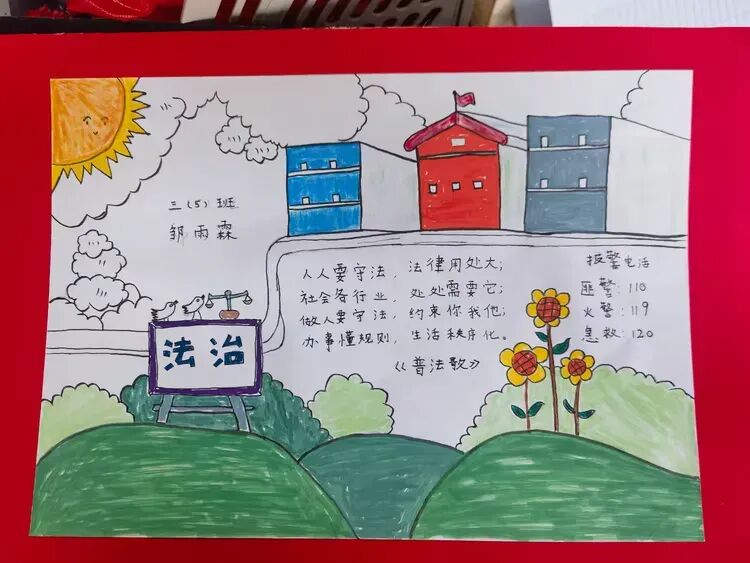 三（5）班
邹雨霖
人人要守法，法律用处大；
社会各行业，处处需要它；
做人要守法，约束你我他；
办事懂规则，生活秩序化。
《普法歌》
报警电话
匪警：110
火警：119
急救：120
法治